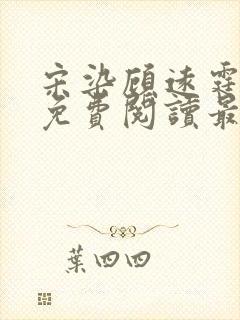 宋染顧遠霆
免費閱讀最
葉四四